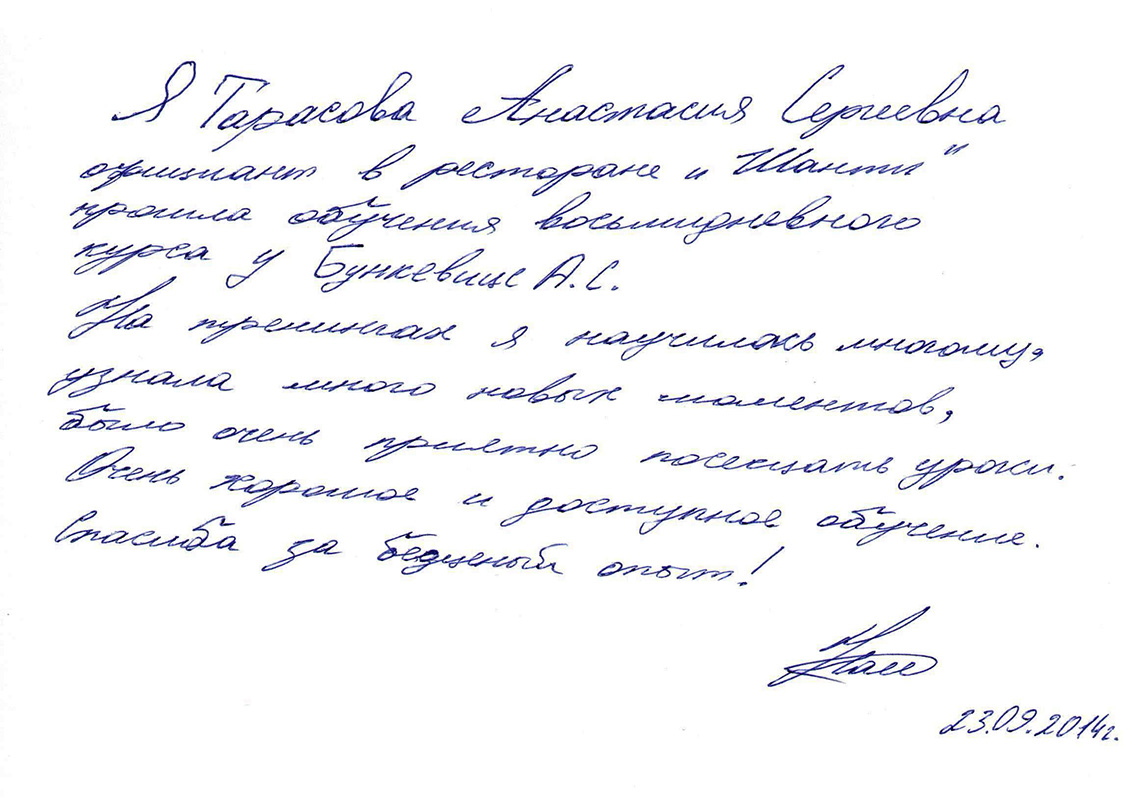 Я Тарасова Анастасия Сергеевна
официант в ресторане "Шанти"
прошла обучения восьмидневного
курса у Бункевич А.С.
На тренингах я научилась многому,
узнала много новых моментов,
было очень приятно посещать уроки.
Очень хорошое и доступное обучение.
Спасиба за бедценый опыт!
23.09.2014г.